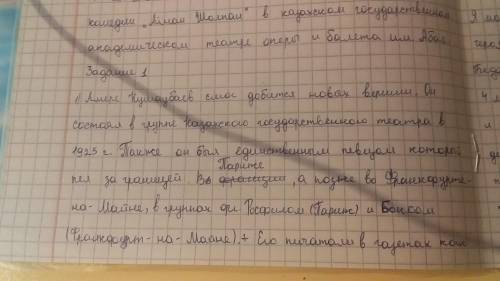 комедии „Айман Шолпан" в казахском государственном
академическом театре оперы и балета им. Абая
Задание 1
1) Амре Кашаубаев смог добится новых вершин. Он
состоял в группе Казахского государственного театра в
1925 г. Также он был единственным певцом которой
Париже
пел за границей. В франции, а позже во Франкфурте-
на-Майне, в группах фр. (Париж) и
(Франкфурт-на-Майне).+ Его печатали в газетах как
Я